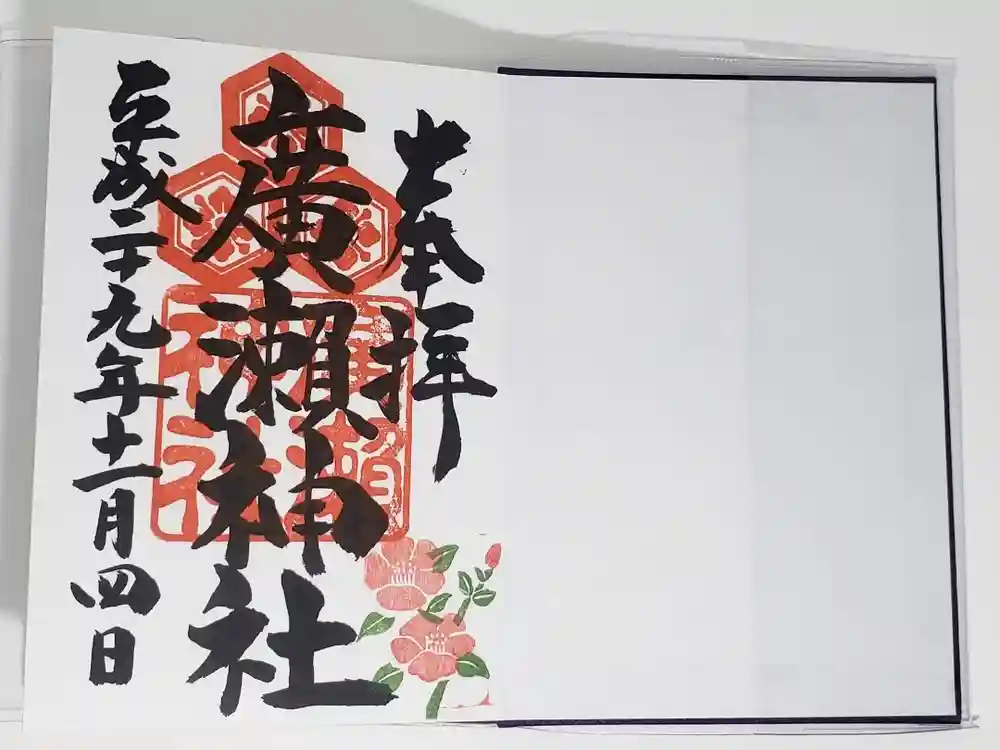 奉拝
廣瀬神社
平成二十九年十一月四日
廣瀬
神社